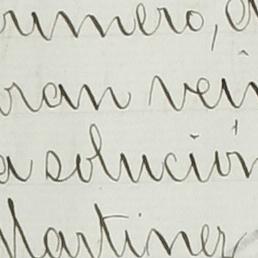 numero, a
oran vein
a solución
Martinez